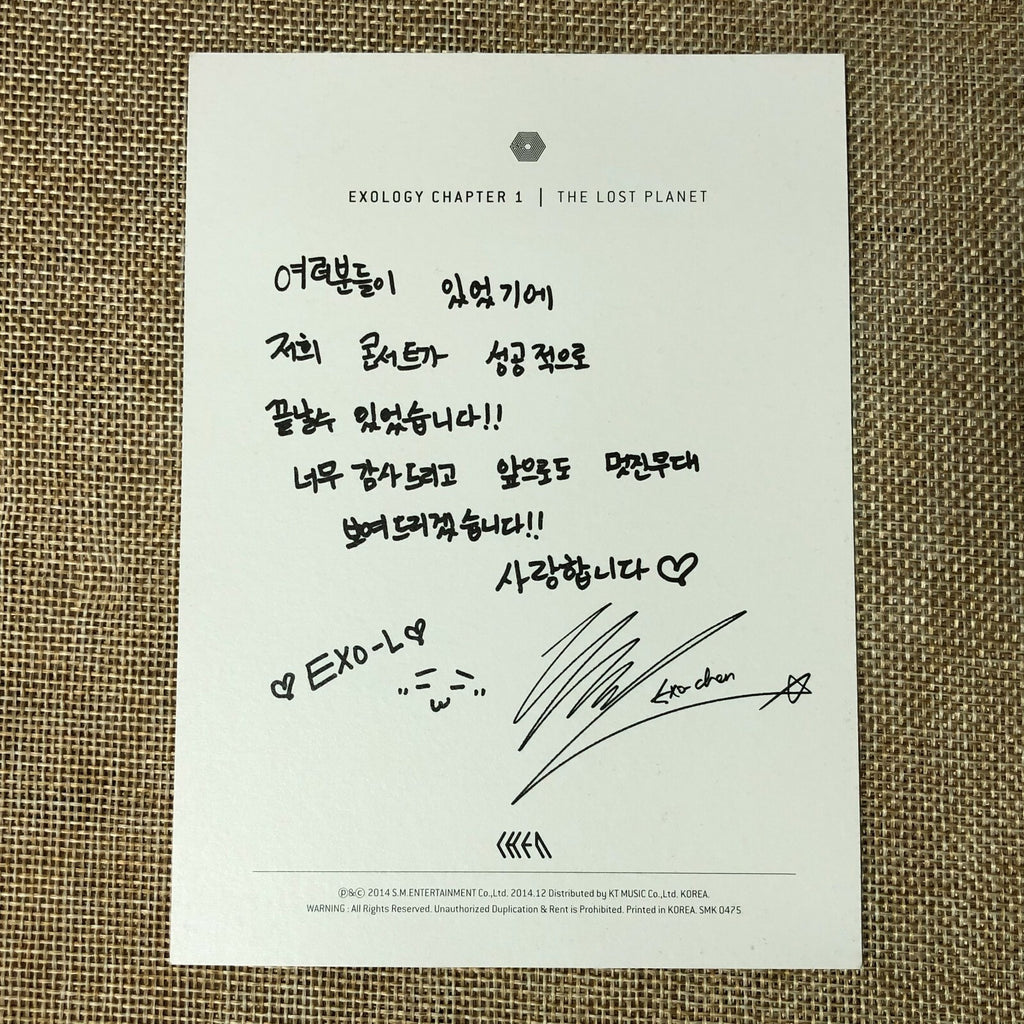 EXOLOGY CHAPTER 1 | THE LOST PLANET
여러분들이 있었기에
저희 콘서트가 성공적으로
끝날수 있었습니다!!
너무 감사드리고 앞으로도 멋진무대
보여드리겠습니다!!
사랑합니다♡
♡ EXO-L ♡
Exo chen
CHEN
℗&© 2014 S.M.ENTERTAINMENT Co.,Ltd. 2014.12 Distributed by KT MUSIC Co.,Ltd. KOREA.
WARNING : All Rights Reserved. Unauthorized Duplication & Rent is Prohibited. Printed in KOREA. SMK 0475